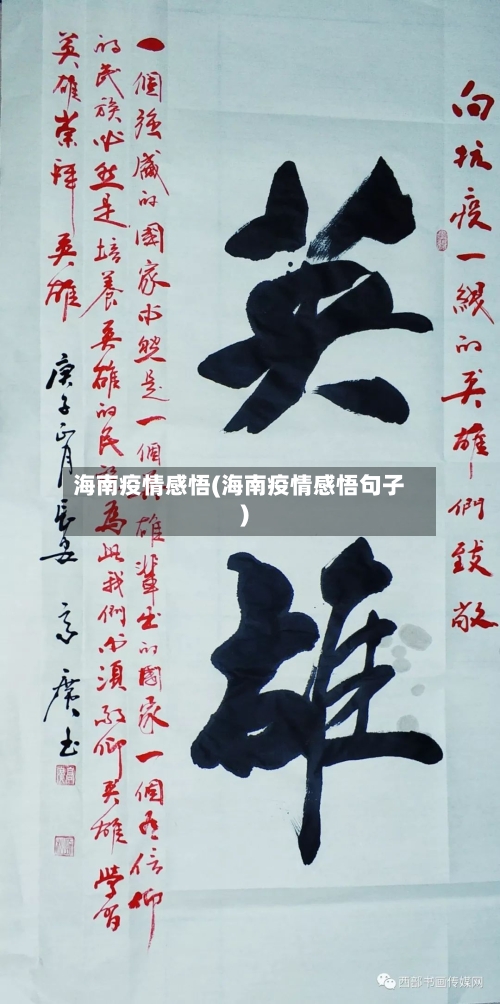 向抗疫一線的英雄们致敬
英雄
一個强盛的國家必然是一個英雄輩出的國家一個有信仰
的民族必然是培養英雄的民族為此我們必須敬仰英雄學習
英雄崇拜英雄
庚子正月長安 高廣玉
海南疫情感悟(海南疫情感悟句子
)
西部书画传媒网